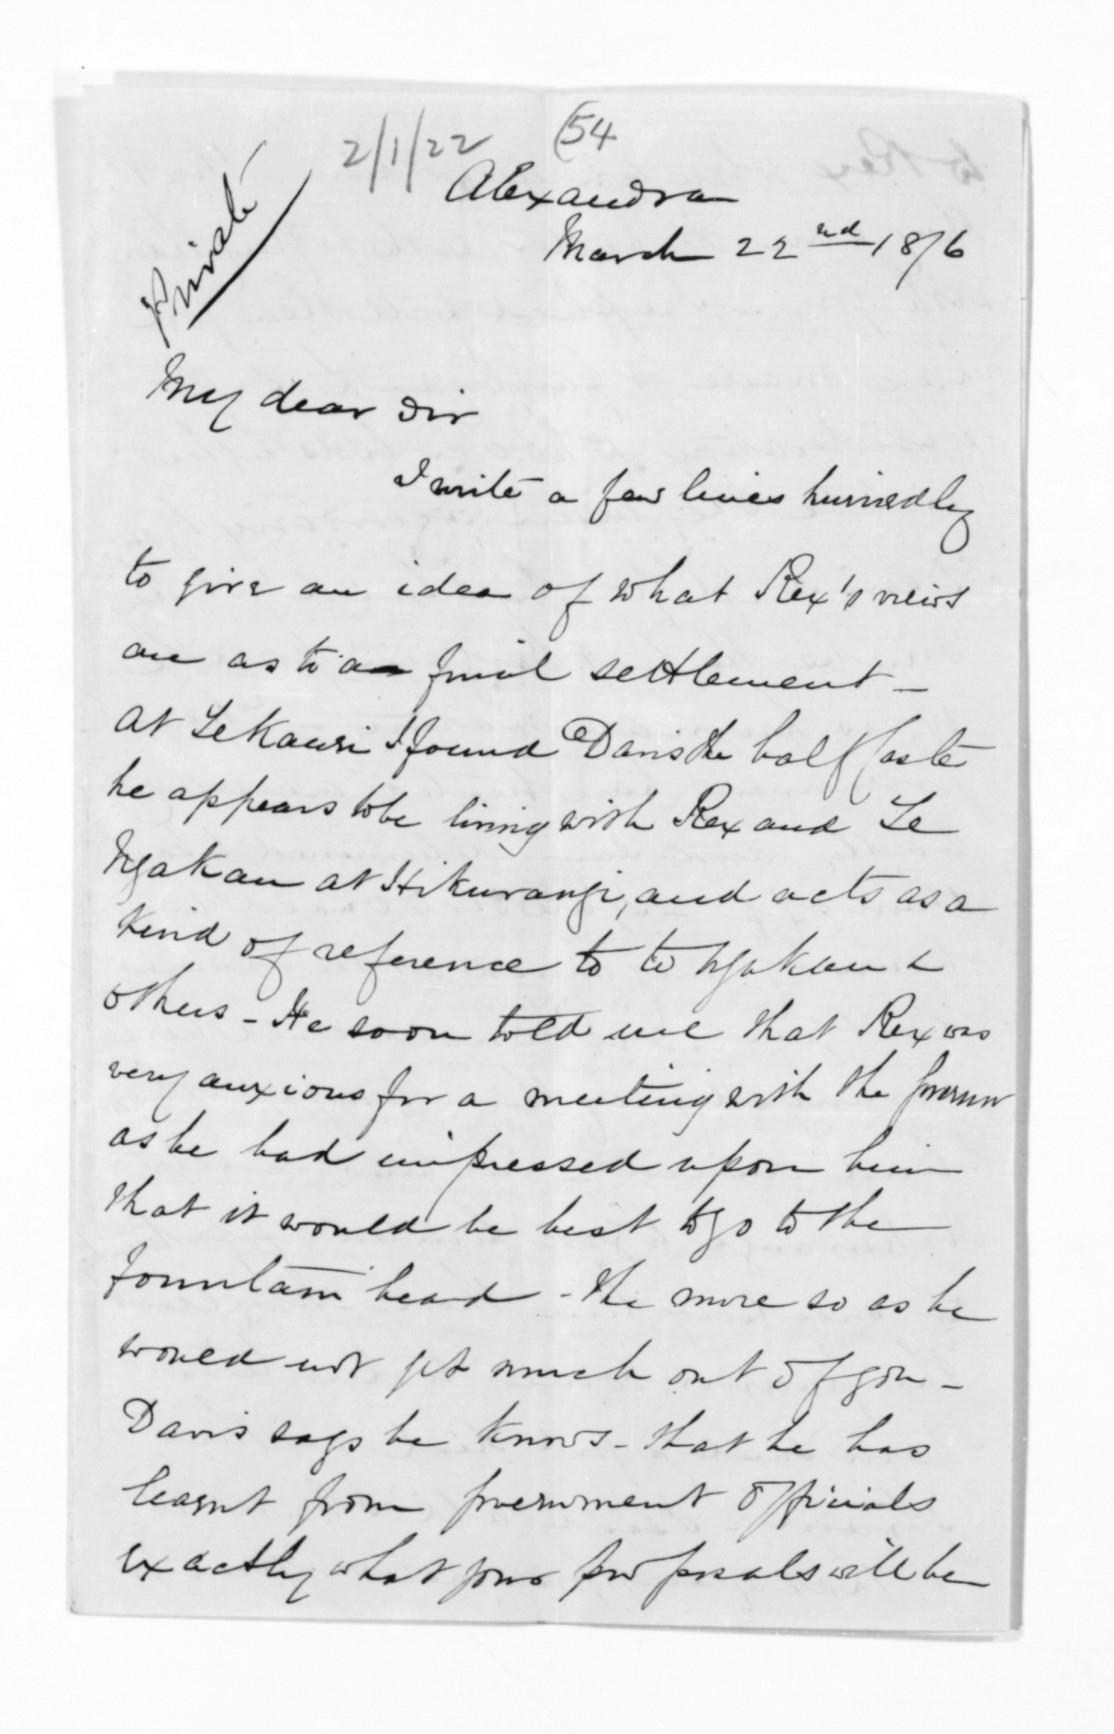 2/1/22 (54
Private
Alexandra
March 22nd 1876
My dear Sir
I write a few lines hurriedly
to give an idea of what Rex's views
are as to a final settlement -
At Te Kauri I found Davis the half Caste
he appears to be living with Rex and Te
Ngakau at Hikurangi, and acts as a
kind of reference to te Ngakau &
others - He soon told me that Rex was
very anxious for a meeting with the Governor
as he had impressed upon him
that it would be best to go to the
fountain head - the more so as he
would not get much out of you -
Davis says he knows - that he has
learnt from Government Officials
exactly what your proposals will be